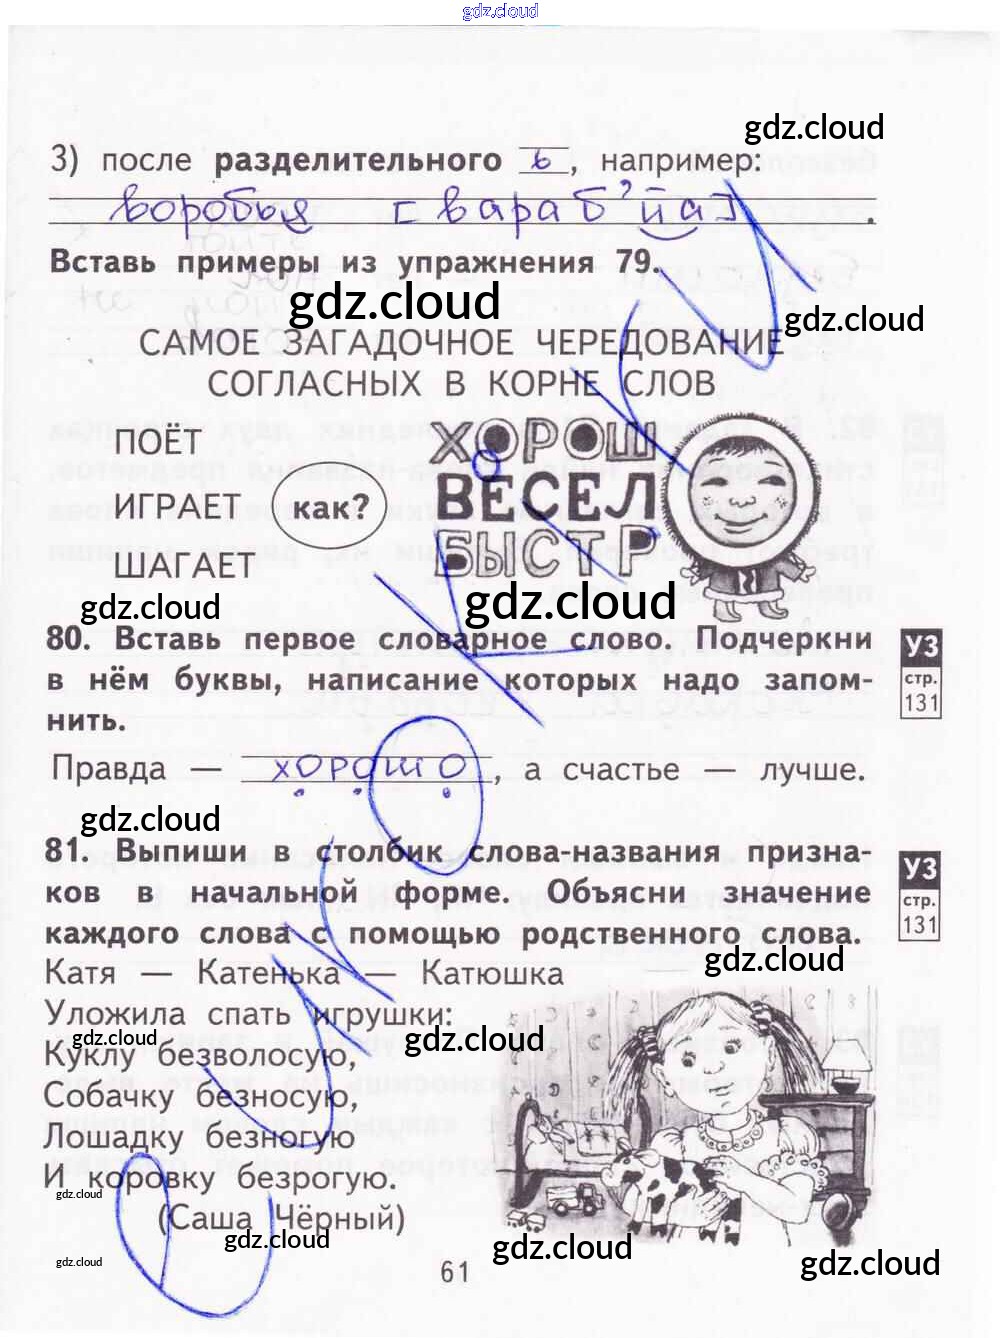 gdz.cloud
gdz.cloud
3) после разделительного ь, например:
воробья [вараб’йа].
Вставь примеры из упражнения 79.
gdz.cloud
gdz.cloud
САМОЕ ЗАГАДОЧНОЕ ЧЕРЕДОВАНИЕ
СОГЛАСНЫХ В КОРНЕ СЛОВ
ПОЁТ
ИГРАЕТ
ШАГАЕТ
как?
ХОРОШО
ВЕСЕЛО
БЫСТРО
gdz.cloud
gdz.cloud
80. Вставь первое словарное слово. Подчеркни
в нём буквы, написание которых надо запом-
нить.
УЗ
стр.
131
Правда — хорошо, а счастье — лучше.
gdz.cloud
81. Выпиши в столбик слова-названия призна-
ков в начальной форме. Объясни значение
каждого слова с помощью родственного слова.
УЗ
стр.
131
gdz.cloud
Катя — Катенька — Катюшка
Уложила спать игрушки:
gdz.cloud
gdz.cloud
Куклу безволосую,
Собачку безносую,
Лошадку безногую
И коровку безрогую.
gdz.cloud
(Саша Чёрный)
gdz.cloud
gdz.cloud
gdz.cloud
gdz.cloud
61